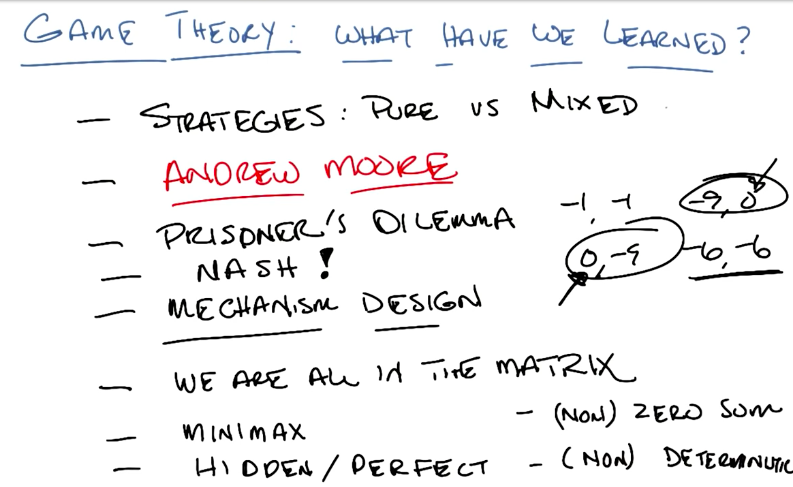 GAME THEORY: WHAT HAVE WE LEARNED?
— STRATEGIES: PURE VS MIXED
— ANDREW MOORE
— PRISONER'S DILEMMA
— NASH!
— MECHANISM DESIGN
-1, -1 -9, 0
0, -9 -6, -6
— WE ARE ALL IN THE MATRIX
— MINIMAX - (NON) ZERO SUM
— HIDDEN / PERFECT - (NON) DETERMINUTIC